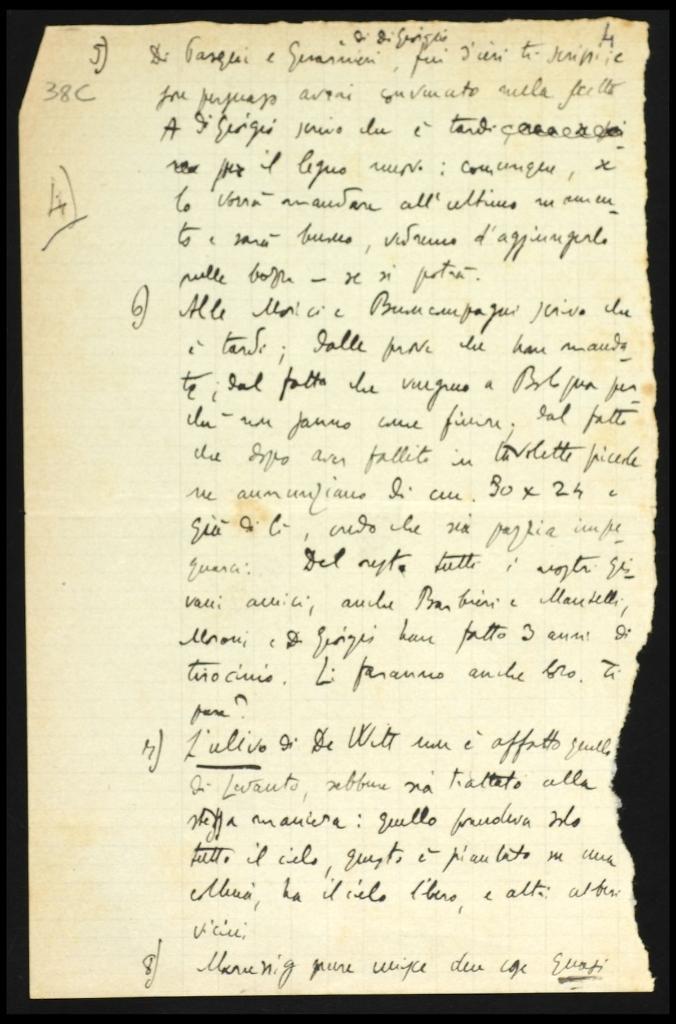 4
di Di Giorgio
5) Di Pasqui e Guarnieri, fin d'ieri ti scrissi, e
38C
son persuaso avrai convenuto nella scelta
A Di Giorgio scrivo che è tardi
per il legno nuovo: comunque, x
4)
lo vorrà mandare all'ultimo momen-
to e sarà buono, vedremo d'aggiungerlo
nelle bozze – se si potrà.
6) Alle Morici e Buoncompagni scrivo che
è tardi; dalle prove che han manda-
te; dal fatto che vengono a Bologna per-
chè non sanno come finire; dal fatto
che dopo aver fallito in tavolette piccole
ne annunziano di cm. 30 x 24 e
già di lì, credo che sia pazzia impe-
gnarci. Del resto tutti i nostri gio-
vani amici, anche Barbieri e Mantelli,
Moroni e Di Giorgio han fatto 3 anni di
tirocinio. Li faranno anche loro. Ti
pare?
7) L'ulivo di De Witt non è affatto quello
di Levanto, sebbene sia trattato alla
stessa maniera: quello prendeva solo
tutto il cielo, questo è piantato su una
collina, ha il cielo libero, e altri alberi
vicini.
8) Marussig pure unisce due cose quasi